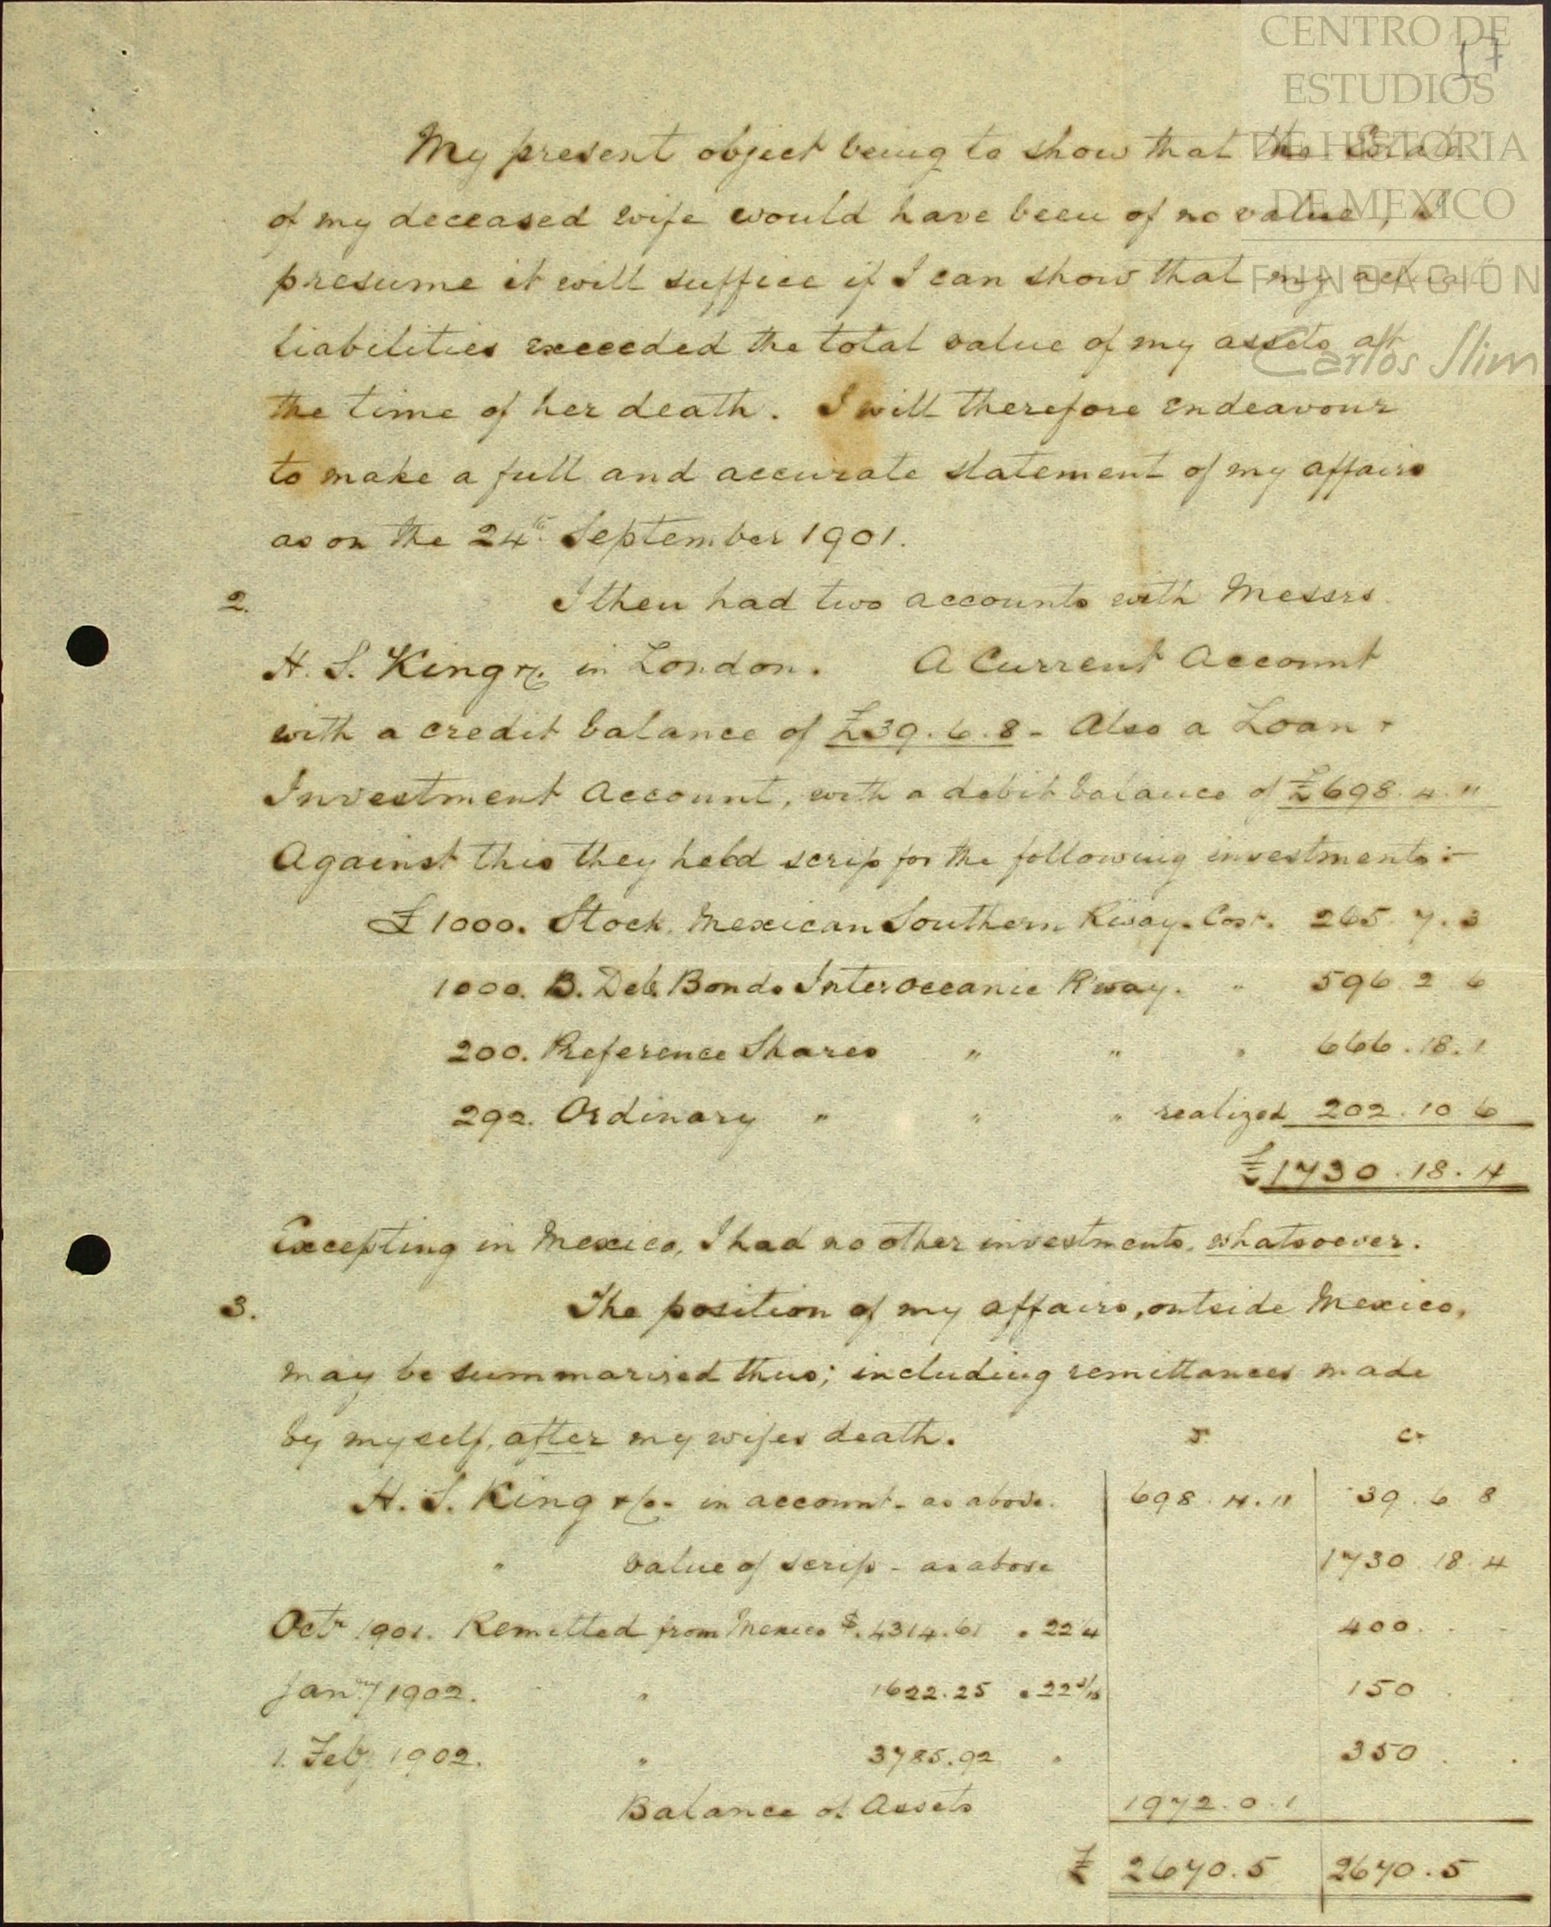 CENTRO DE
ESTUDIOS
DE HISTORIA
DE MEXICO
FUNDACIÓN
Carlos Slim
17
My present object being to show that the Estate
of my deceased wife would have been of no value, I
presume it will suffice if I can show that my actual
liabilities exceeded the total value of my assets at
the time of her death. I will therefore endeavour
to make a full and accurate statement of my affairs
as on the 24th September 1901.
2. I then had two accounts with Messrs
H. S. King &c. in London. A Current Account
with a credit balance of £39.6.8 - Also a Loan &
Investment Account, with a debit balance of £698.4.11
Against this they held scrip for the following investments:-
£1000. Stock Mexican Southern Rway. Cost. 265.7.3
1000. B. Deb. Bonds Interoceanic R'way. " 596.2.6
200. Preference Shares " " " 666.18.1
292. Ordinary " " " realized 202.10.6
£1730.18.4
Excepting in Mexico, I had no other investments, whatsoever.
3. The position of my affairs, outside Mexico,
may be summarised thus; including remittances made
by myself, after my wifes death. Dr. Cr.
H. S. King &c. in account - as above. 698.4.11 39.6.8
" value of scrip - as above 1730.18.4
Octr 1901. Remitted from Mexico $.4314.61 . 22 1/4 400. . .
Jany 1902. " 1622.25 . 150 . .
1. Feby 1902. " 3785.92 " 350 . .
Balance of Assets 1972.0.1
£ 2670.5 2670.5